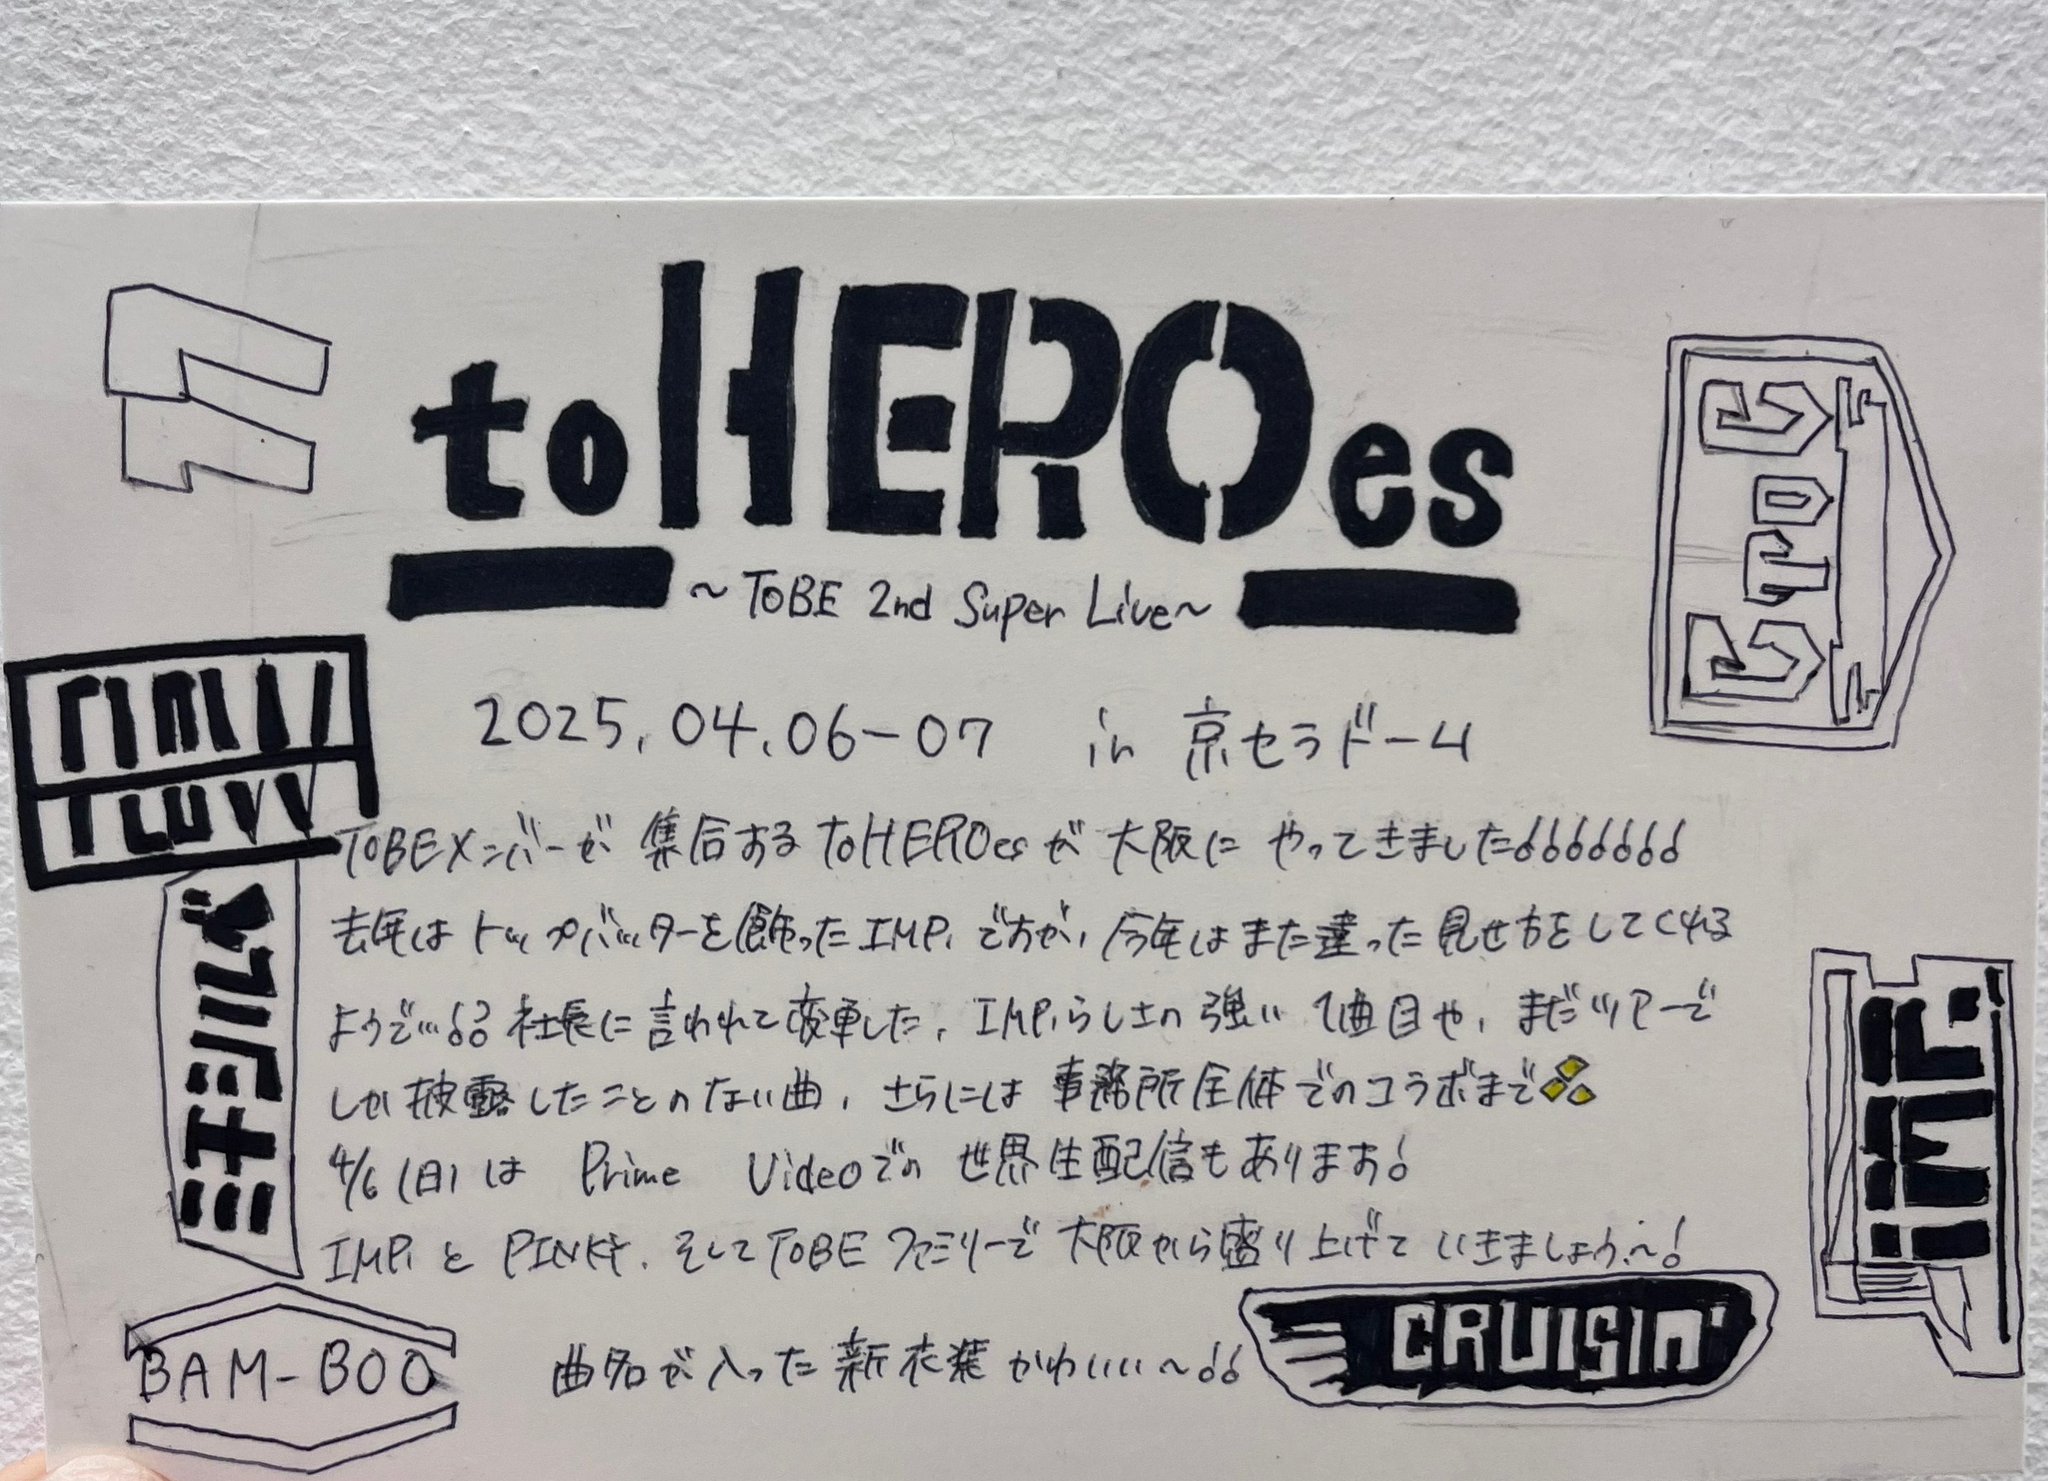 toHEROes
～TOBE 2nd Super Live～
2025.04.06-07 in 京セラドーム
TOBEメンバーが集合するtoHEROesが大阪にやってきました!!!!!!!
去年はトップバッターを飾ったIMP.ですが、今年はまた違った見せ方をしてくれる
ようで…!? 社長に言われて変更した、IMP.らしさの強い1曲目や、まだツアーで
しか披露したことのない曲、さらには事務所全体でのコラボまで
4/6(日)は Prime Videoでの世界生配信もあります!
IMP.とPINKY、そしてTOBEファミリーで大阪から盛り上げていきましょう～!
BAM-BOO
曲名が入った新衣装かわいい～!!
CRUISIN'
IMP.